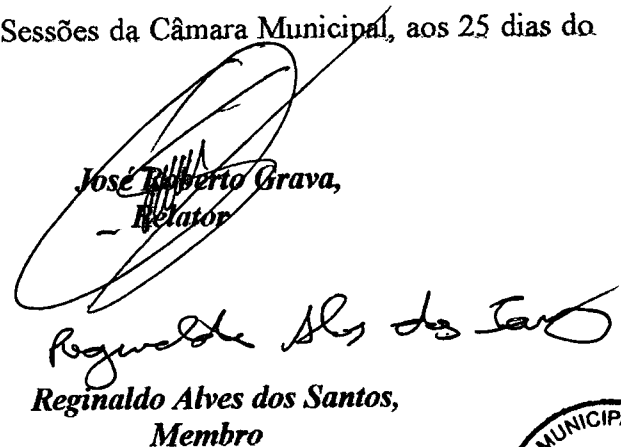 Sessões da Câmara Municipal, aos 25 dias do
José Roberto Grava,
Relator
Reginaldo Alves dos Santos
Reginaldo Alves dos Santos,
Membro
MUNICIPA